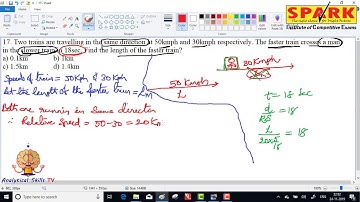 SPARK
Institute of Competitive Exams
17. Two trains are travelling in the same direction at 50kmph and 30kmph respectively. The faster train crosses a man
in the slower train in 18sec. Find the length of the faster train?
a) 0.1km b) 1km
c) 1.5km d) 1.4km
Speeds of train = 50Kph & 30Kph
Let the length of the faster train = L m
Both are runnin in Same direction
∴ Relative Speed = 50-30 = 20Km
50 Kmph
L
30 Kmph
t = 18 Sec
d/RS = 18
L/20×5/18 = 18
Analytical Skills TV